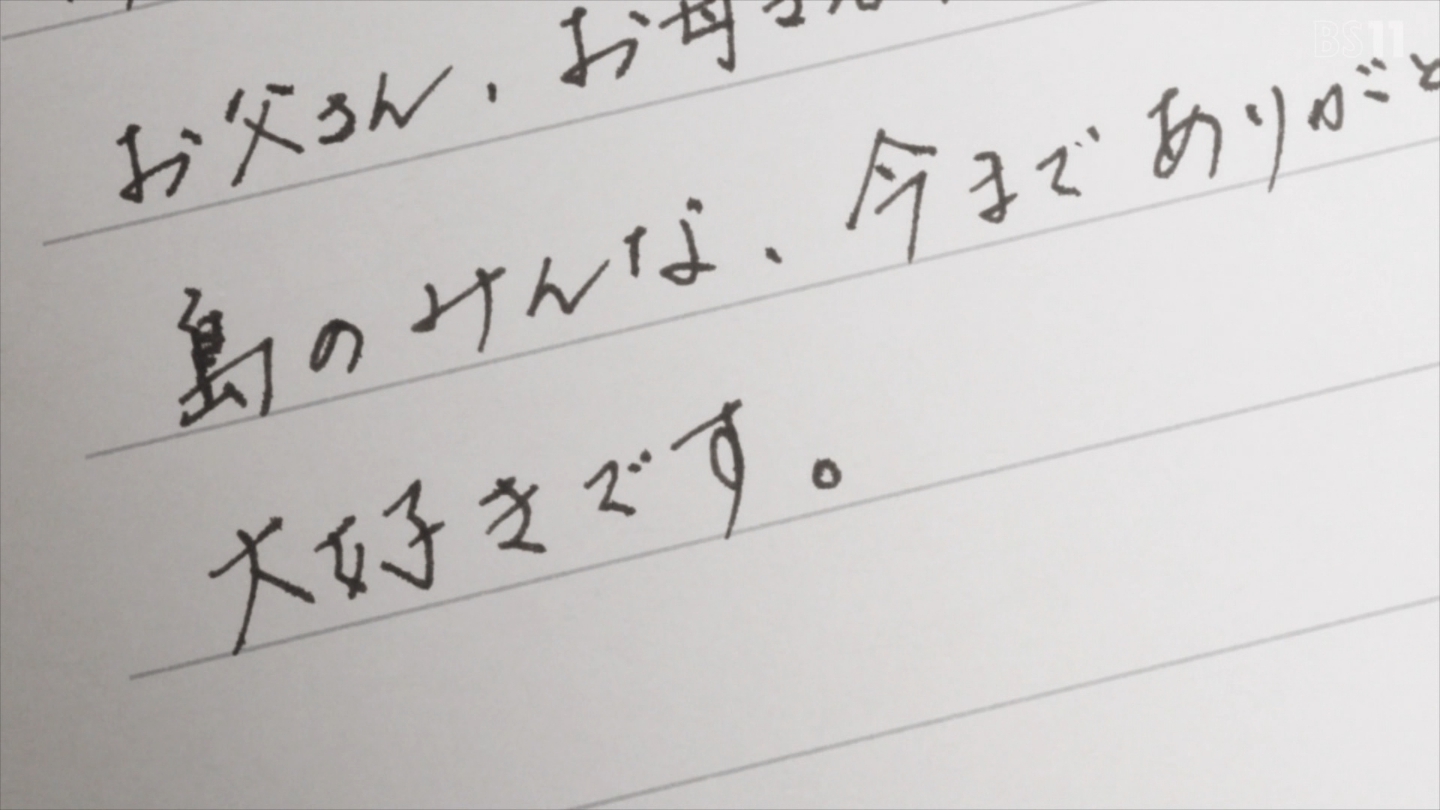 BS11
お父さん、お母さん
島のみんな、今までありがと
大好きです。